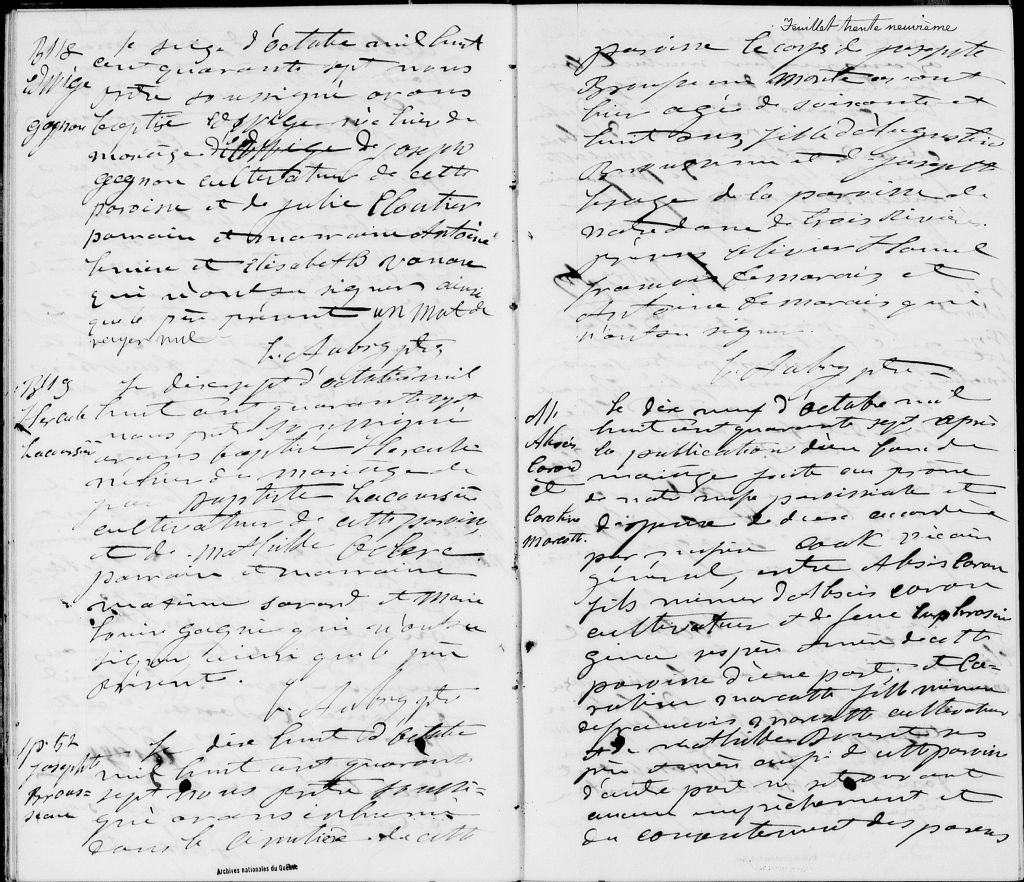 B118
Edwige
gagnon
le seize d'octobre mil huit
cent quarante sept nous
prêtre soussigné avons
baptisé Edwige née hier du
mariage de joseph
gagnon cultivateur de cette
paroisse et de julie Cloutier
parrain et marraine Antoine
et Elisabeth
qui n'ont su signer ainsi
que le père présent un mot de
rayer nul
L. Aubry ptre
B119
Hercule
Lacoursière
le dixsept d'octobre mil
huit cent quarante sept
nous prêtre soussigné
avons baptisé Hercule
né hier du mariage de
baptiste Lacoursière
cultivateur de cette paroisse
et de Mathilde Leclerc
parrain et marraine
maxime savard et Marie
louise gagné qui n'ont su
signer, ainsi que le père
présent.
L. Aubry ptre
Joseph
Brous-
seau
le dixe huit d'octobre
mil huit cent quarante
sept nous prêtre soussi-
gné avons inhumé
dans le cimetière de cette
Feuillet trente neuvième
paroisse le corps de josephte
morte avant
hier agée de soixante et
huit ans fille d'Augustin
et de josephte
lesage de la paroisse de
notre dame de trois Rivière.
présens olivier Hamel
françois Desmarais et
Antoine Desmarais qui
n'ont su signer.
L. Aubry ptre
M.
Alexis
Caron
et
Caroline
Marcotte
le dix neuf d'octobre mil
huit cent quarante sept après
la publication d'un banc de
mariage faite au prone
de notre messe paroissiale et
dispense de deux accordée
par messire Cook vicaire
général, entre Alexis Caron
fils mineur d'Alexis Caron
cultivateur et de feue Euphrosine
ses père et mère de cette
paroisse d'une part. et Ca-
roline Marcotte fille mineure
de françois Marcotte cultivateur
et de Mathilde ses
père et mère aussi de cette paroisse
d'autre part ne se trouvant
aucun empêchement et
du consentement des parens
Archives nationales du Québec